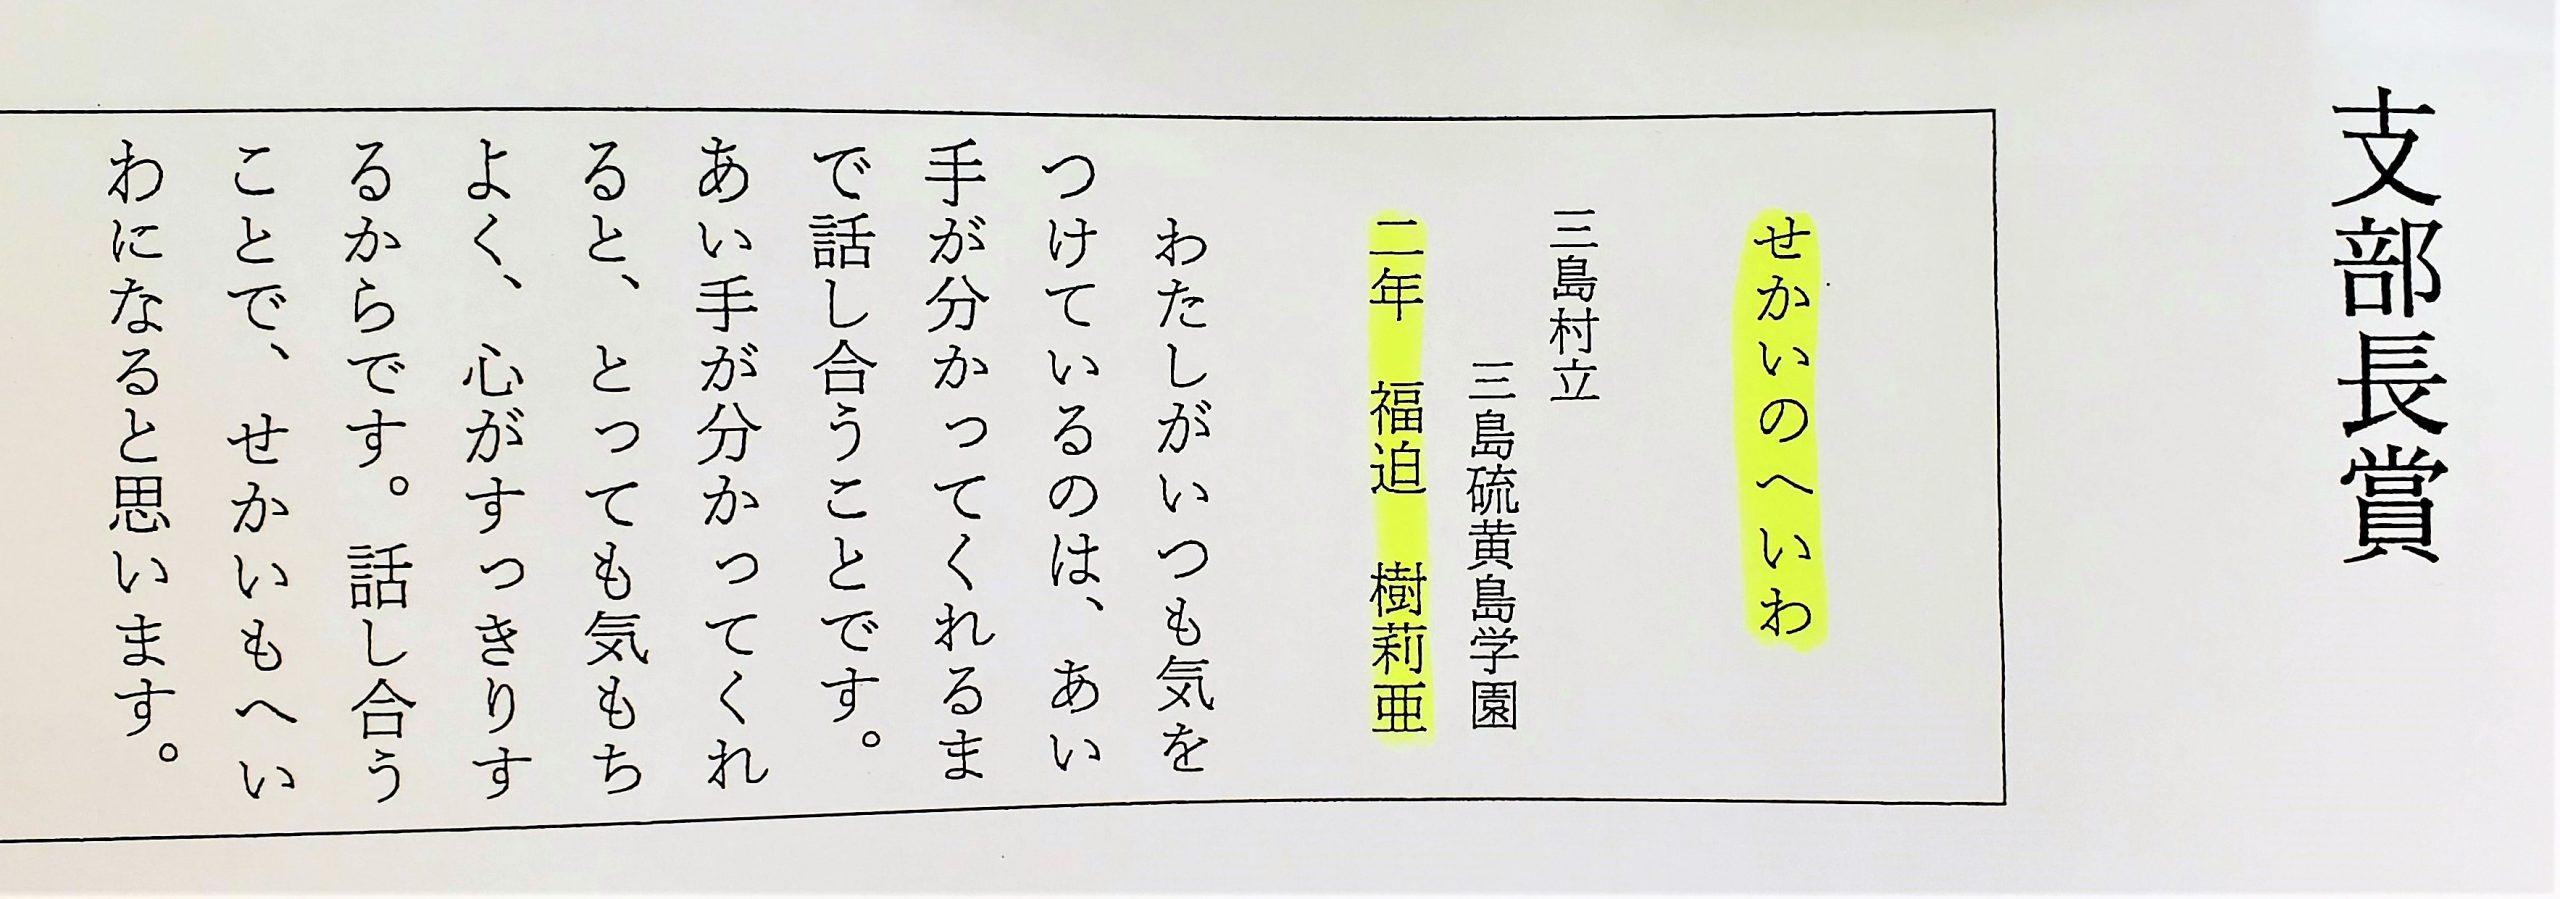 支部長賞
せかいのへいわ
三島村立
三島硫黄島学園
二年　福迫　樹莉亜
わたしがいつも気を
つけているのは、あい
手が分かってくれるま
で話し合うことです。
あい手が分かってくれ
ると、とっても気もち
よく、心がすっきりす
るからです。話し合う
ことで、せかいもへい
わになると思います。